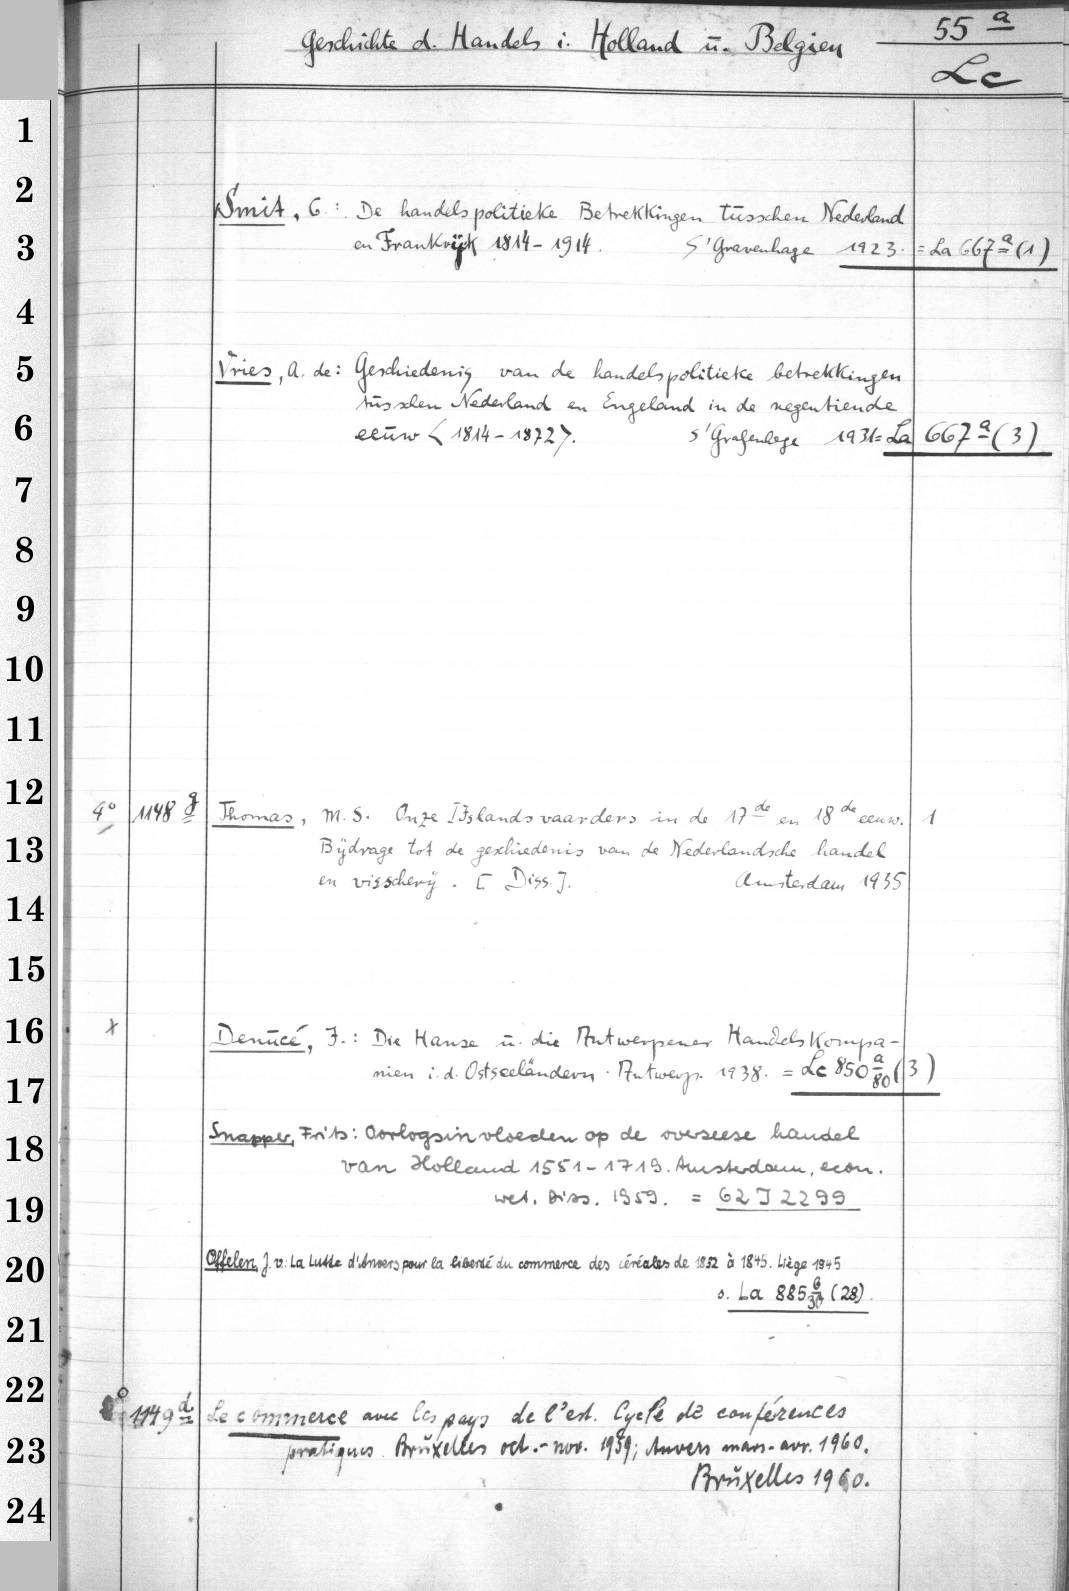 Geschichte d. Handels i. Holland ū. Belgien
55 a
Lc
Smit, C.: De handelspolitieke Betrekkingen tūsschen Nederland
en Frankrijk 1814-1914. S'Gravenhage 1923. = La 667 a (1)
Vries, A. de: Geschiedenis van de handelspolitieke betrekkingen
tūsschen Nederland en Engeland in de negentiende
eeūw <1814-1872>. S'Grafenhage 1931 = La 667 a (3)
4° 1148 g Thomas, M.S. Onze IJslandsvaarders in de 17de en 18de eeuw. 1
Bijdrage tot de geschiedenis van de Nederlandsche handel
en visscherij. [Diss.]. Amsterdam 1935
x Denūcé, J.: Die Hanse ū. die Antwerpener Handelskompa-
nien i.d. Ostseeländern. Antwerp. 1938. = Lc 850 a/80 (3)
Snapper, Frits: Oorlogsinvloeden op de overseese handel
van Holland 1551-1719. Amsterdam, econ.
wet. Diss. 1959. = 62 J 2299
Offelen, J. v.: La Lutte d'Anvers pour la liberté du commerce des céréales de 1832 à 1845. Liège 1945
s. La 885 b/30 (28).
8° 1149 d Le commerce avec les pays de l'est. Cycle de conférences
pratiques. Brūxelles oct.-nov. 1959; Anvers mars-avr. 1960.
Brūxelles 1960.
1
2
3
4
5
6
7
8
9
10
11
12
13
14
15
16
17
18
19
20
21
22
23
24